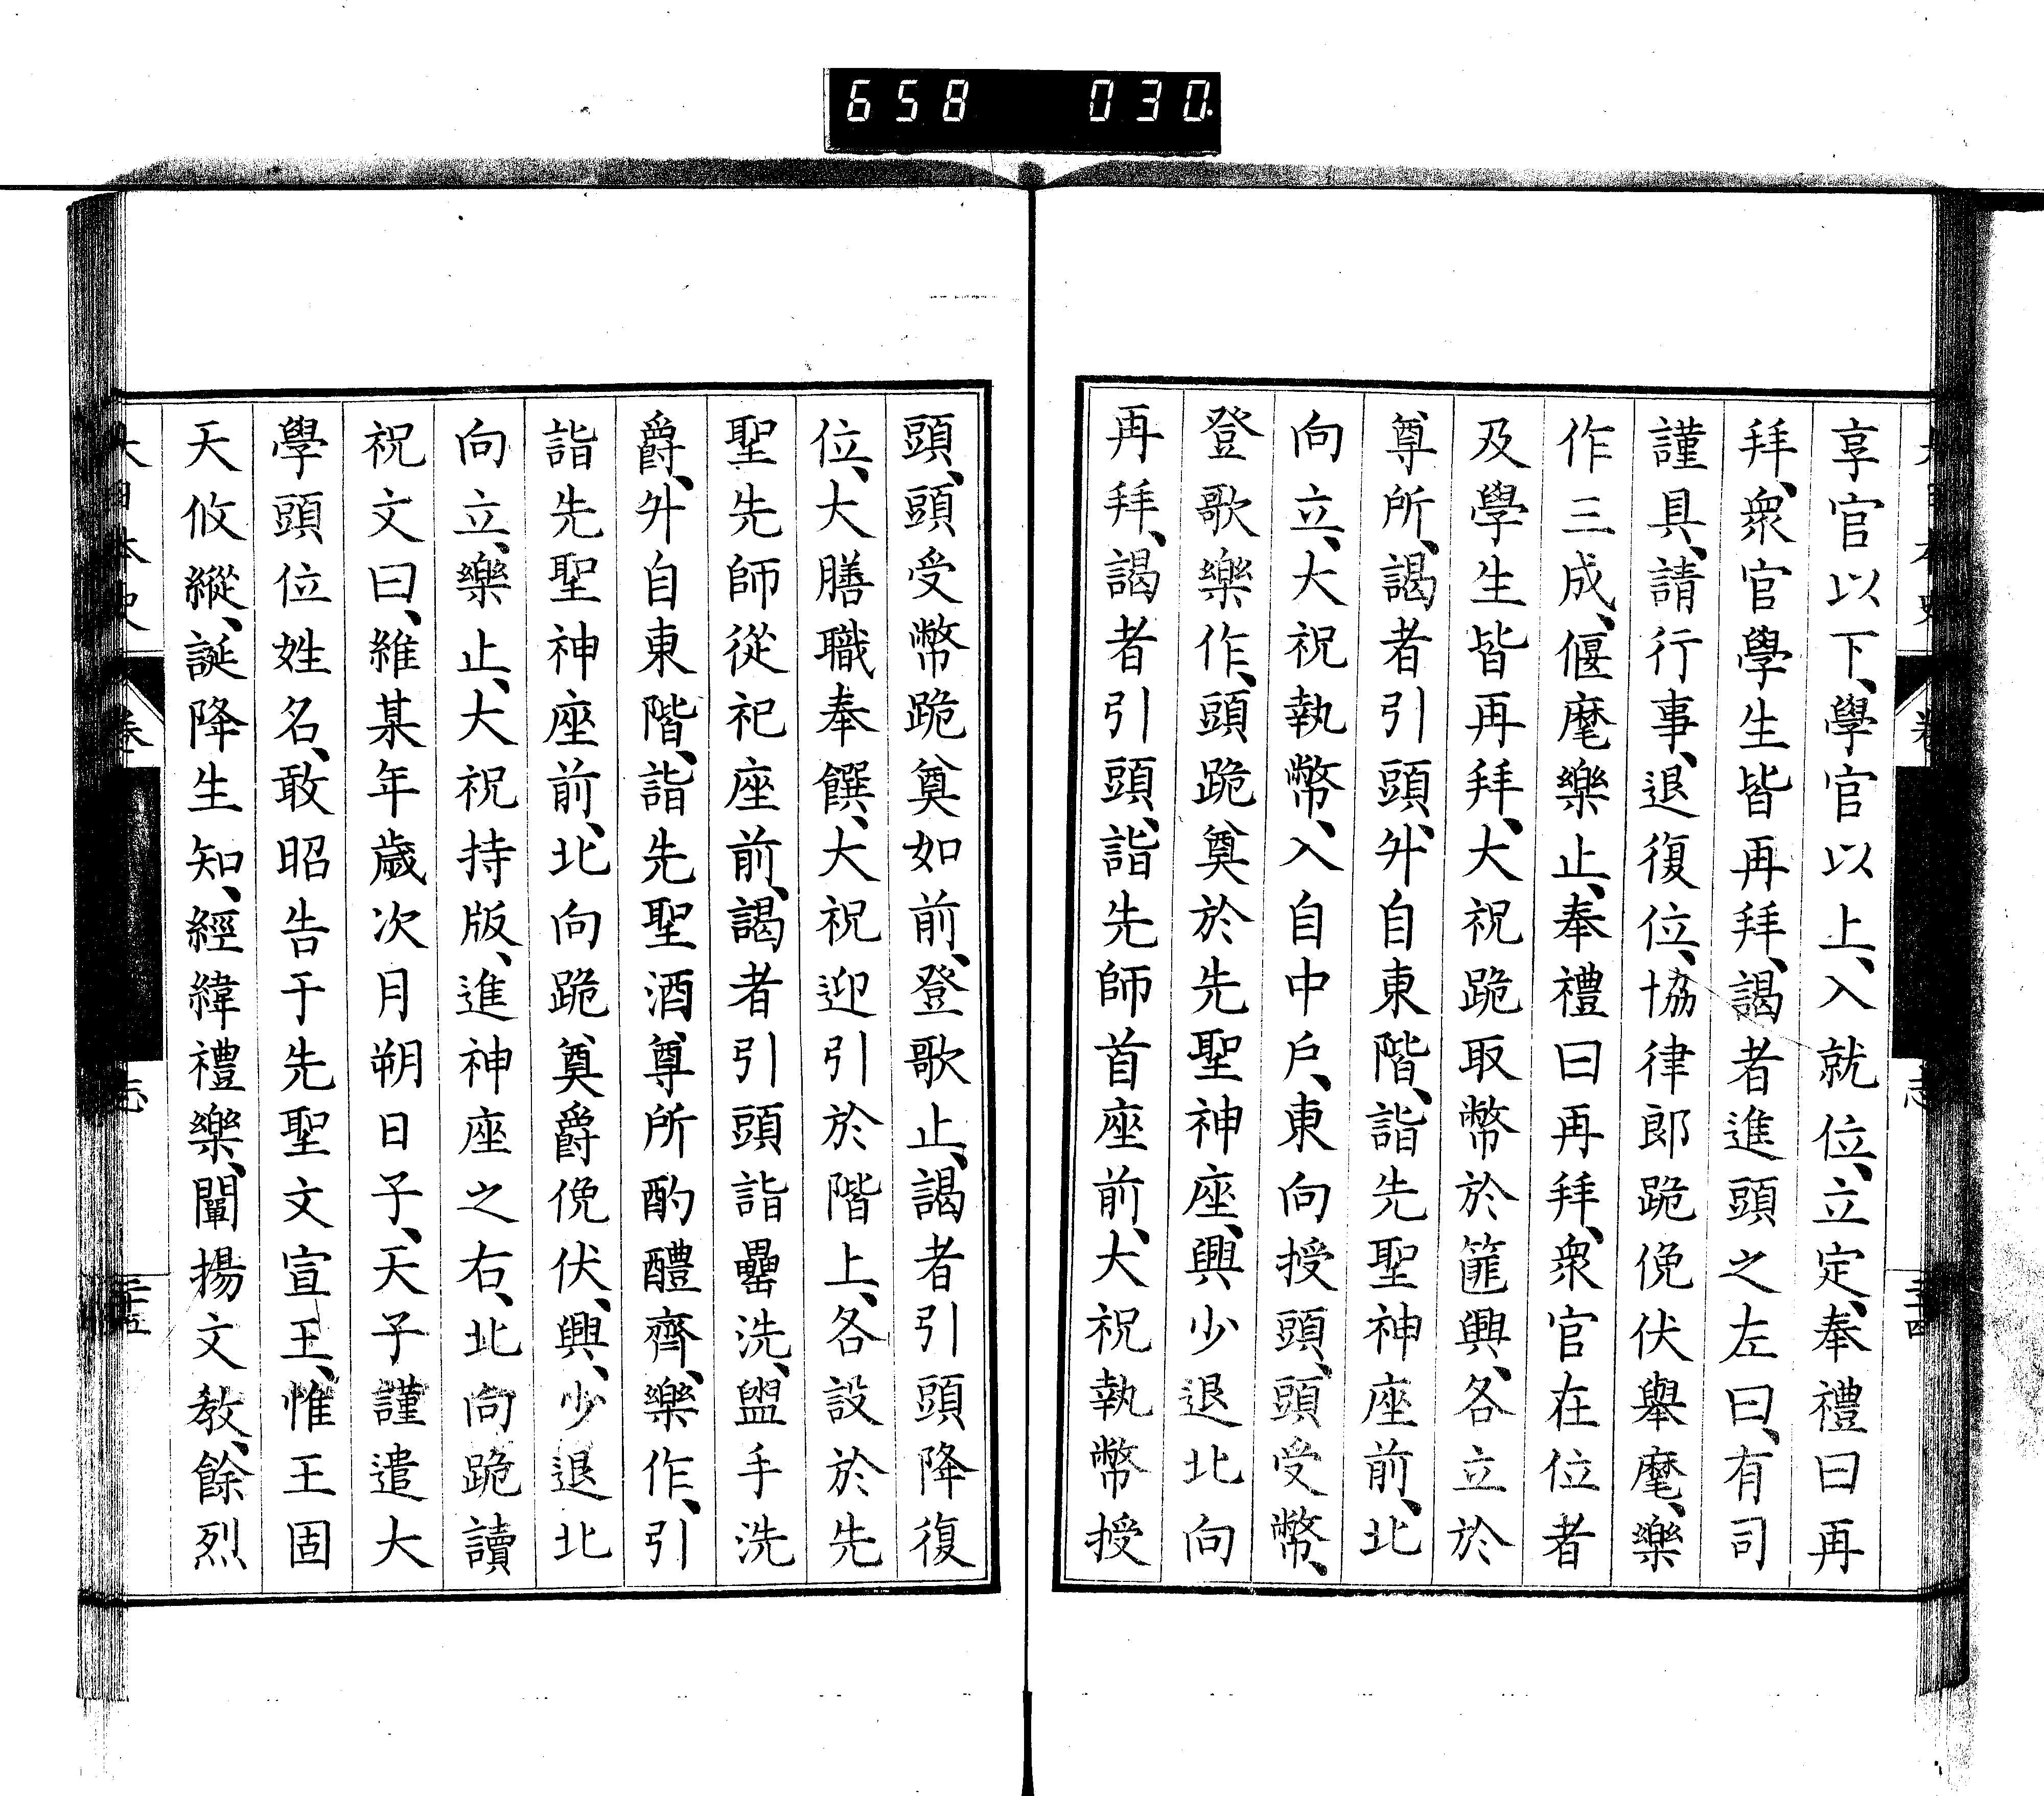 658 030
享官以下、學官以上、入就位、立定、奉禮曰再
拜、衆官學生皆再拜、謁者進頭之左曰、有司
謹具、請行事、退復位、協律郎跪俛伏舉麾、樂
作三成、偃麾樂止、奉禮曰再拜、衆官在位者
及學生皆再拜、大祝跪取幣於篚興、各立於
尊所、謁者引頭、升自東階、詣先聖神座前、北
向立、大祝執幣、入自中戶、東向授頭、頭受幣、
登歌樂作、頭跪奠於先聖神座、興少退北向
再拜、謁者引頭、詣先師首座前、大祝執幣授
頭、頭受幣跪奠如前、登歌止、謁者引頭降復
位、大膳職奉饌、大祝迎引於階上、各設於先
聖先師從祀座前、謁者引頭詣罍洗、盥手洗
爵、升自東階、詣先聖酒尊所酌醴齊、樂作、引
詣先聖神座前、北向跪奠爵俛伏、興、少退北
向立、樂止、大祝持版、進神座之右、北向跪讀
祝文曰、維某年歲次月朔日子、天子謹遣大
學頭位姓名、敢昭告于先聖文宣王、惟王固
天攸縱、誕降生知、經緯禮樂、闡揚文教、餘烈